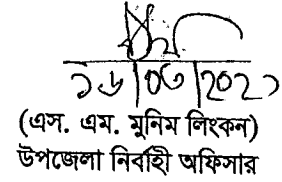 ১৬/০৩/২০২১
(এস. এম. মুনিম লিংকন)
উপজেলা নির্বাহী অফিসার